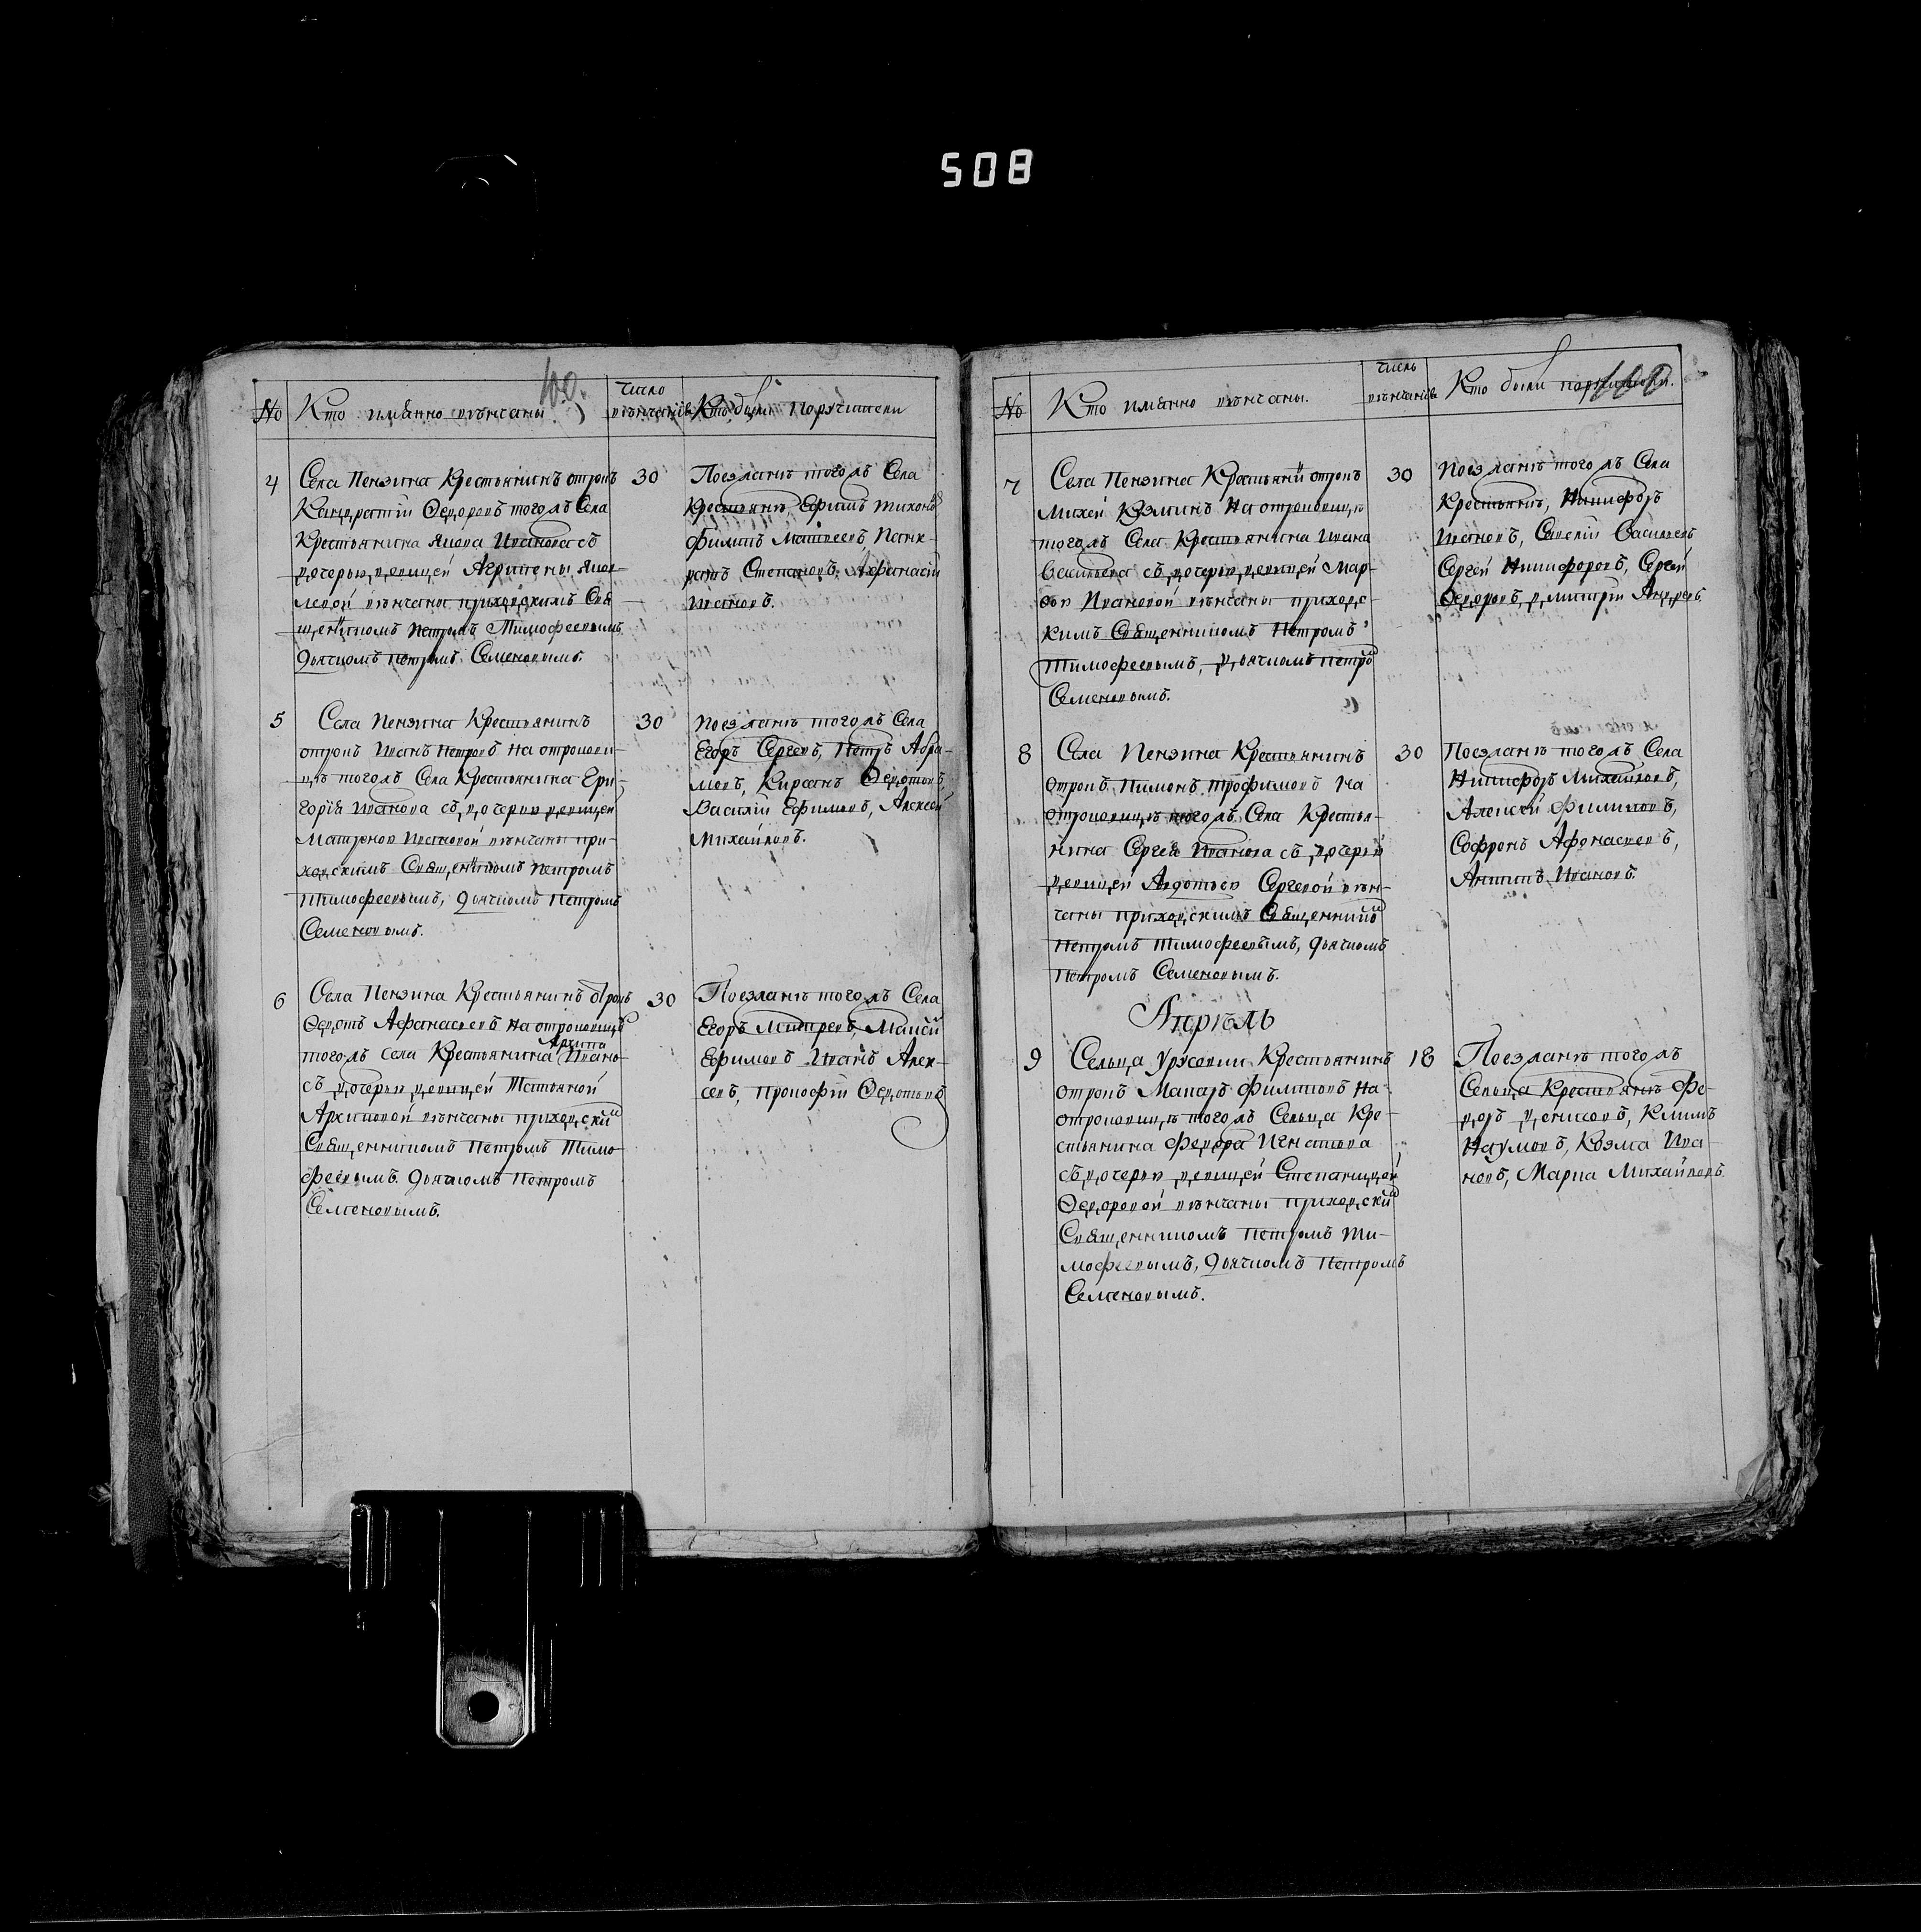 508
100.
№ Кто имянно вѣнчаны
Число вѣнчанія
Кто были Поручители
4 Села Пензина Крестьянинъ отрокъ
Кандратій Ѳедоровъ тогожъ Села
Крестьянина Якова Иванова съ
дочерью девицей Агрипены Яков-
левой вѣнчаны приходскимъ Свя-
щенникомъ Петромъ Тимофеевымъ
дьячкомъ Петромъ Семеновымъ.
30
Поезжанѣ тогожъ Села
Крестьянѣ, Ефимъ Тихоновъ
Филипъ Матвеевъ, Панк-
ратъ Степановъ, Афанасій
Ивановъ.
5 Села Пензина Крестьянинъ
отрокъ Иванъ Петровъ на отрокови-
цѣ тогожъ Села Крестьянина Гри-
горія Иванова съ дочерью девицей
Матреною Ивановой вѣнчаны при-
ходскимъ Священникомъ Петромъ
Тимофеевымъ, дьячкомъ Петромъ
Семеновымъ.
30
Поезжанѣ тогожъ Села
Егоръ Сергеевъ, Петръ Абра-
мовъ, Кирсанъ Ѳедотовъ,
Василій Ефимовъ, Алексей
Михайловъ.
6 Села Пензина Крестьянинъ отрокъ
Ѳедотъ Афанасьевъ на отроковицѣ
тогожъ села Крестьянина Архипа Ивано-
съ дочерью девицей Татьяной
Архиповой вѣнчаны приходским
Священникомъ Петромъ Тимо-
феевымъ дьячкомъ Петромъ
Семеновымъ.
30
Поезжанѣ тогожъ Села
Егоръ Митревъ, Маисій
Ефимовъ Иванъ Алек-
севъ, Прокофій Ѳедотовъ
100
№ Кто имянно вѣнчаны.
Число вѣнчанія
Кто были поручители.
7 Села Пензина Крестьянинъ отрокъ
Михей Козминъ на отроковицѣ
тогожъ Села Крестьянина Ивана
Васильева съ дочерью девицей Мар-
ѳою Ивановой вѣнчаны приходс-
кимъ Священникомъ Петромъ
Тимофеевымъ, дьячкомъ Петро
Семеновымъ.
30
Поезжанѣ тогожъ Села
Крестьянѣ, Никифоръ
Ивановъ, Савелій Васильевъ
Сергей Никифоровъ, Сергей
Ѳедоровъ, Дмитрій Андреевъ.
8 Села Пензина Крестьянинъ
отрокъ Пимонъ Трофимовъ на
отроковицѣ тогожъ Села Крестья-
нина Сергея Иванова съ дочерью
девицей Авдотьею Сергевой вѣн-
чаны приходскимъ Священником
Петромъ Тимофеевымъ, дьячкомъ
Петромъ Семеновымъ.
30
Поезжанѣ тогожъ Села
Никифоръ Михайловъ,
Алексей Филиповъ,
Софронъ Афонасьевъ,
Антипъ Ивановъ.
Апрѣль
9 Сельца Урусовки Крестьянинъ
отрокъ Макаръ Филиповъ на
отроковицѣ тогожъ Сельца Кре-
стьянина Федора Игнатьева
съ дочерью девицей Степанидой
Ѳедоровой вѣнчаны приходским
Священникомъ Петромъ Ти-
мофеевымъ, дьячкомъ Петромъ
Семеновымъ.
18
Поезжанѣ тогожъ
Сельца Крестьянѣ Фе-
доръ Денисовъ, Климъ
Наумовъ, Козма Ива-
новъ, Марка Михайловъ